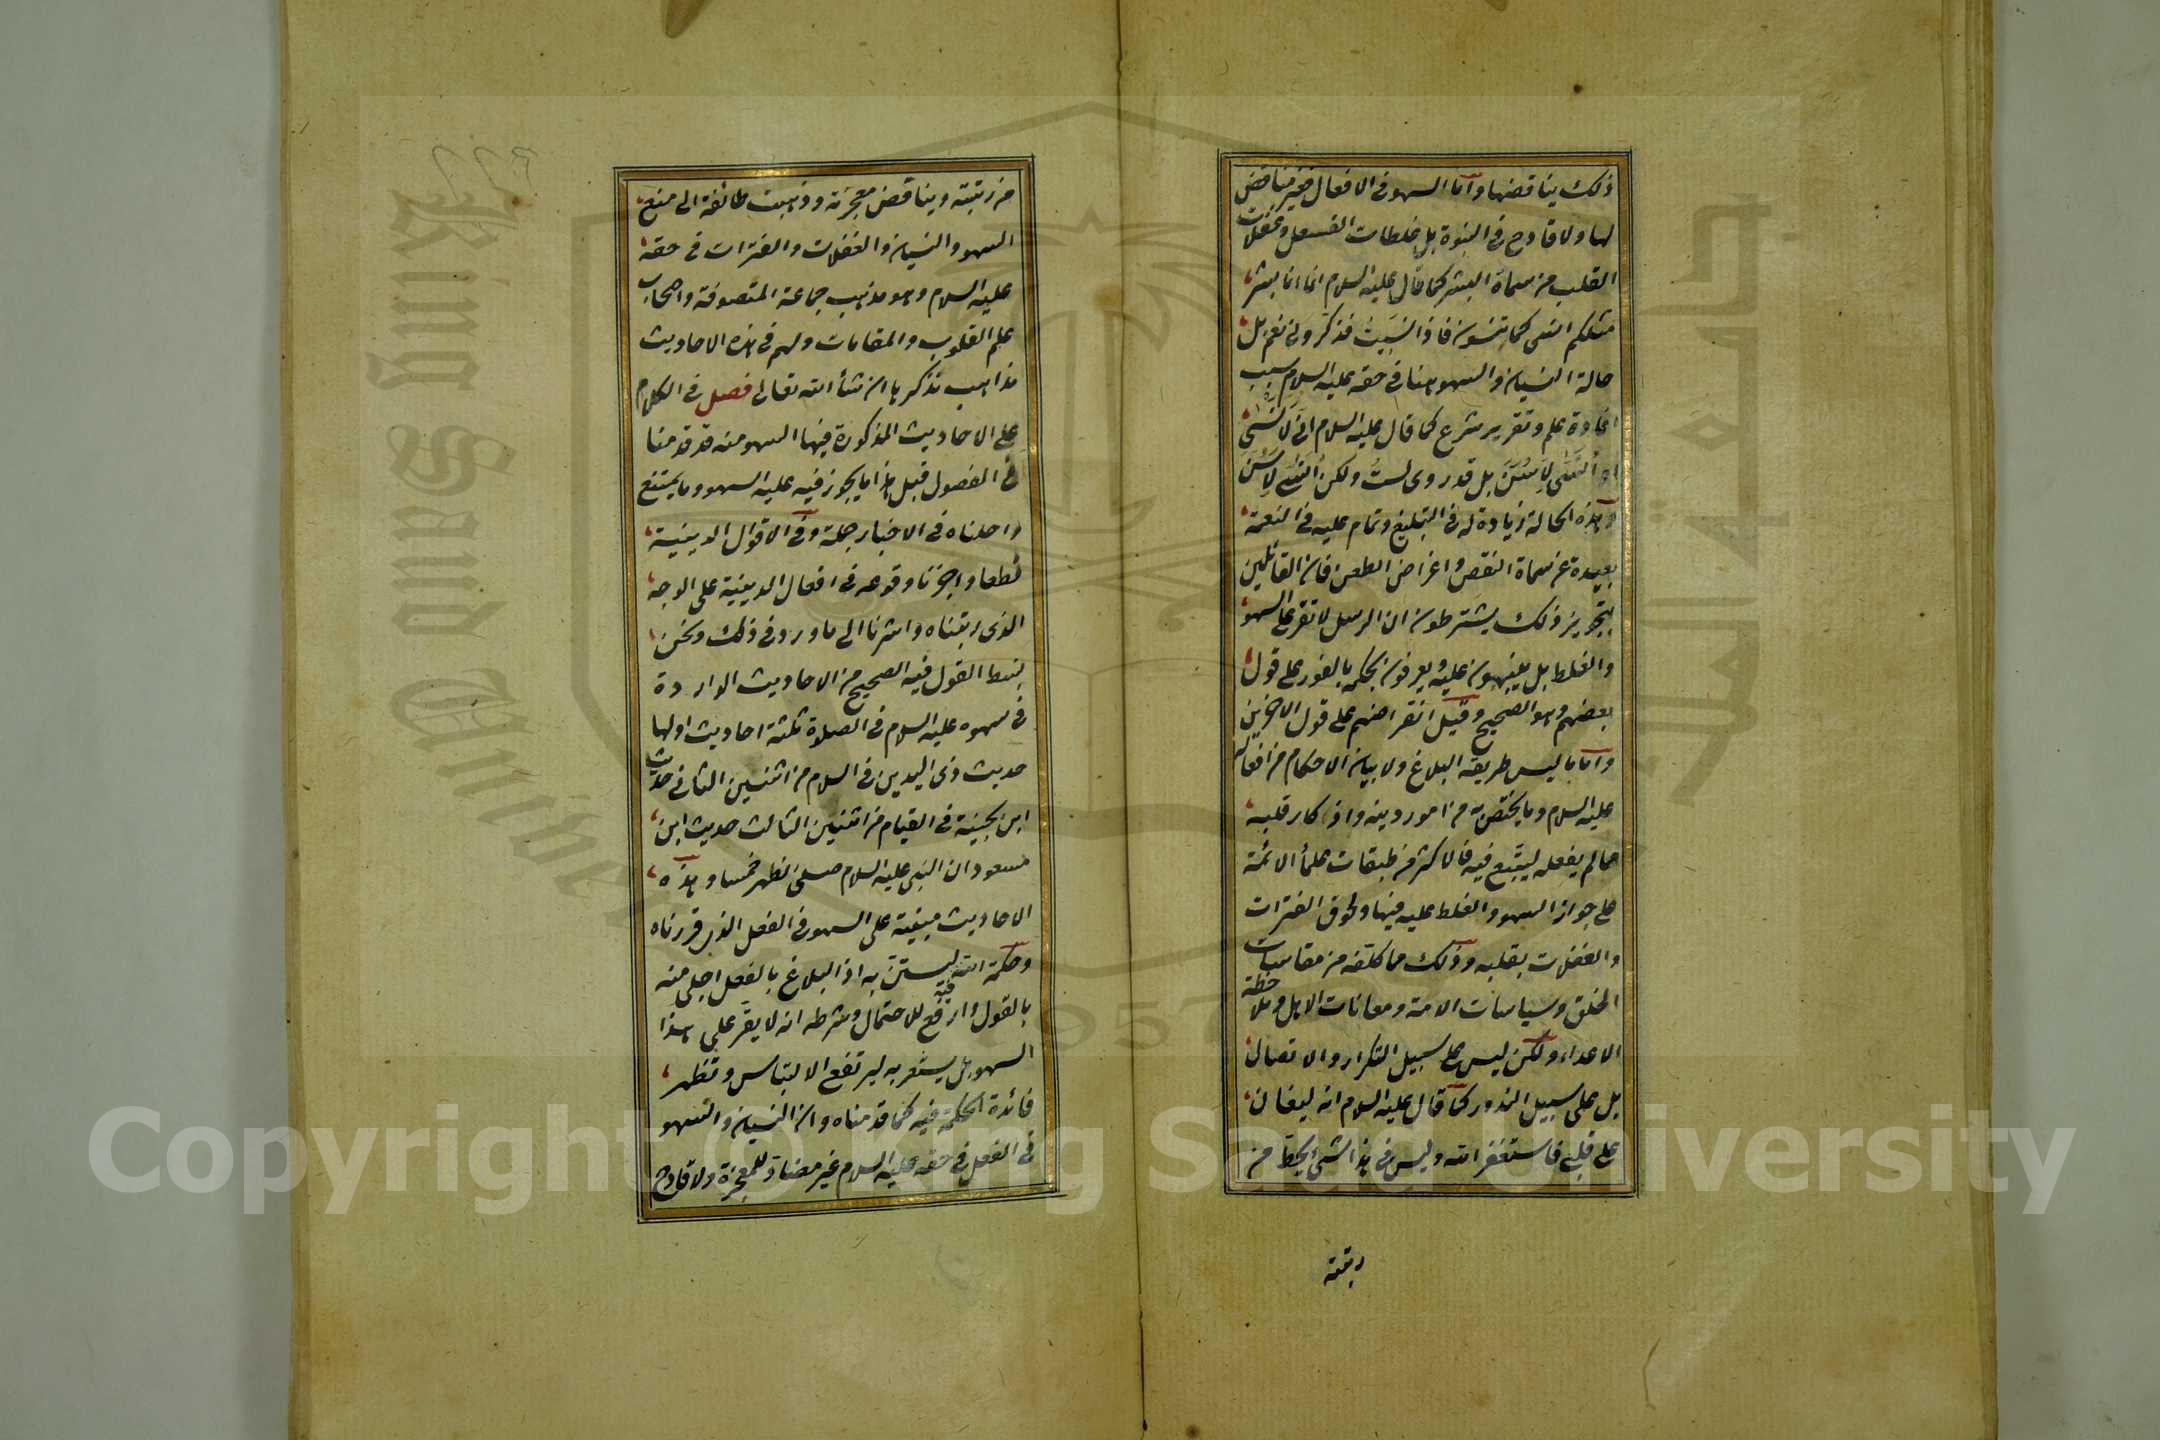 ذلك يناقضها واما السهو فى الافعال فغير مناقض
لها ولا قادح فى النبوة بل غلطات الفعل وغفلات
القلب من سماة البشر كما قال عليه السلام انما انا بشر
مثلكم انسى كما تنسون فاذا نسيت فذكرونى نعم بل
حالة النسيان والسهو هنا فى حقه عليه السلام سبب
افادة علم وتقرير شرع كما قال عليه السلام انى لانسى
او أنسى لاسن بل قد روى لست ولكن أنسى لاسن
وهذه الحالة زيادة له فى التبليغ وتمام عليه فى النعمة
بعيدة عن سماة النقص واغراض الطعن فان القائلين
بتجويز ذلك يشترطون ان الرسل لا تقر على السهو
والغلط بل ينبهون عليه ويعرفون بحكمه بالفور على قول
بعضهم وهو الصحيح وقيل انقراضهم على قول الاخرين
واما ما ليس طريقه البلاغ ولا بيان الاحكام من افعاله
عليه السلام وما يختص به من امور دينه واذكار قلبه
مما لم يفعله ليتبع فيه فالاكثر من طبقات علمأ الائمة
على جواز السهو والغلط عليه فيها ولحوق الفترات
والغفلات بقلبه وذلك مما كلفه من مقاسات
الخلق وسياسات الامة ومعانات الاهل وملاحظة
الاعداء ولكن ليس على سبيل التكرار والاتصال
بل على سبيل الندور كما قال عليه السلام انه ليغان
على قلبى فاستغفر الله وليس فى هذا شئ يحط من
رتبته
من رتبته ويناقض معجزته وذهبت طائفة الى منع
السهو والنسيان والغفلات والفترات فى حقه
عليه السلام وهو مذهب جماعة المتصوفة واصحاب
علم القلوب والمقامات ولهم فى هذه الاحاديث
مذاهب نذكرها ان شأ الله تعالى فصل فى الكلام
على الاحاديث المذكورة فيها السهو منه قد قدمنا
فى الفصول قبل هذا ما يجوز فيه عليه السهو وما يمتنع
واحلناه فى الاخبار جملة وفى الاقوال الدينية
قطعا واجزنا وقوعه فى افعال الدينية على الوجه
الذى رتبناه واشرنا الى ما ورد فى ذلك ونحن
نبسط القول فيه الصحيح من الاحاديث الواردة
فى سهوه عليه السلام فى الصلوة ثلثة احاديث اولها
حديث ذى اليدين فى السلام من اثنين الثانى حديث
ابن بحينة فى القيام من اثنتين الثالث حديث ابن
مسعود ان النبى عليه السلام صلى الظهر خمسا وهذه
الاحاديث مبنية على السهو فى الفعل الذى قررناه
وحكمة الله ليستن به اذ البلاغ بالفعل اجلى منه
بالقول وارفع للاحتمال وشرطه انه لا يقر على هذا
السهو بل يشعر به ليرتفع الالتباس وتظهر
فائدة الحكمة فيه كما قدمناه وان النسيان والسهو
فى الفعل فى حقه عليه السلام غير مضاد للمعجزة ولا قادح
Copyright © King Saud University